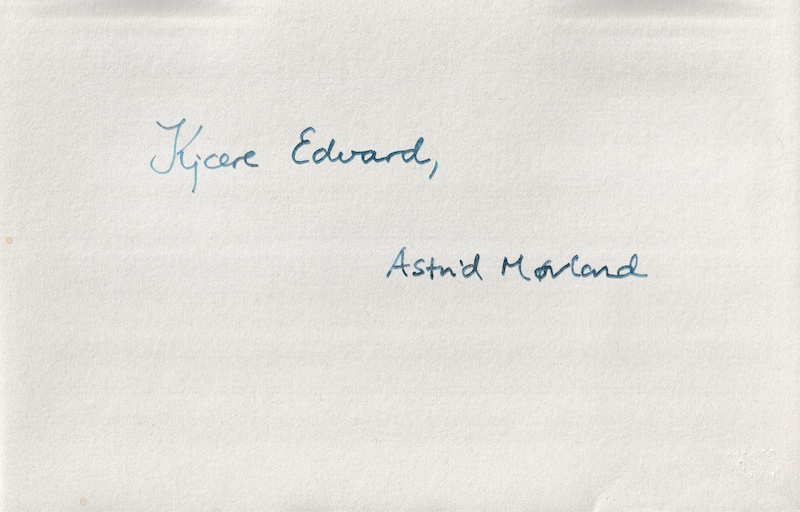 Kjære Edvard,
Astrid Mørland